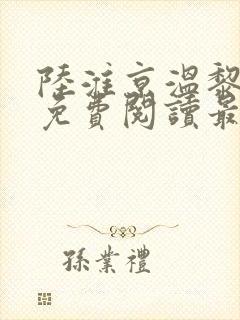 陸淮京溫黎
免費閱讀最
孫業禮